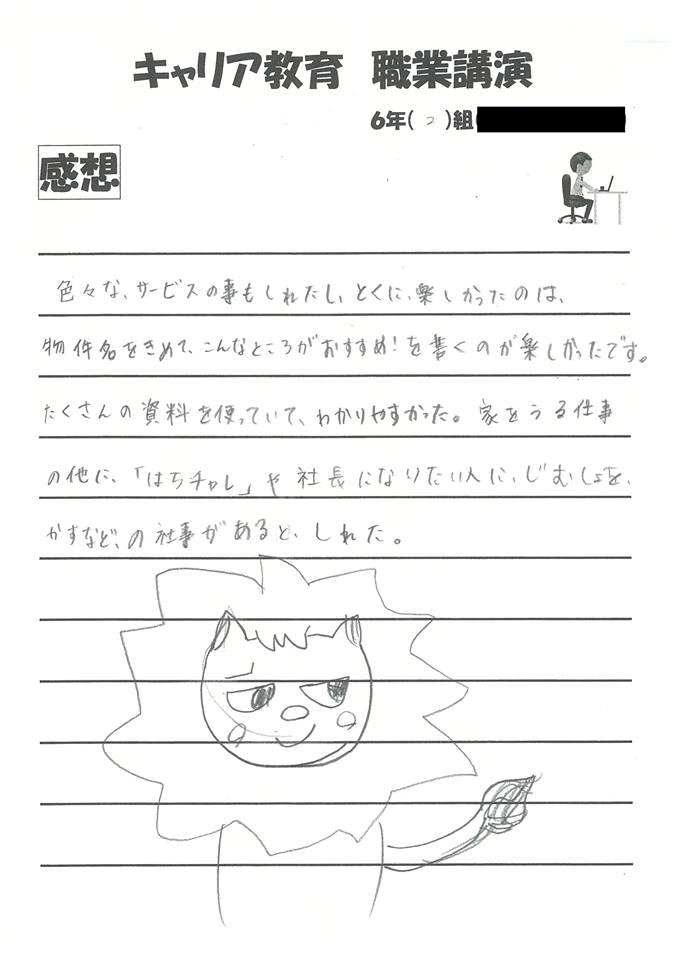 キャリア教育 職業講演
6年( 2 )組
感想
色々な、サービスの事もしれたし、とくに、楽しかったのは、
物件名をきめて、こんなところがおすすめ!を書くのが楽しかったです。
たくさんの資料を使っていて、わかりやすかった。家をうる仕事
の他に、「はちチャレ」や社長になりたい人に、じむしょを、
かすなど、の社事があると、しれた。